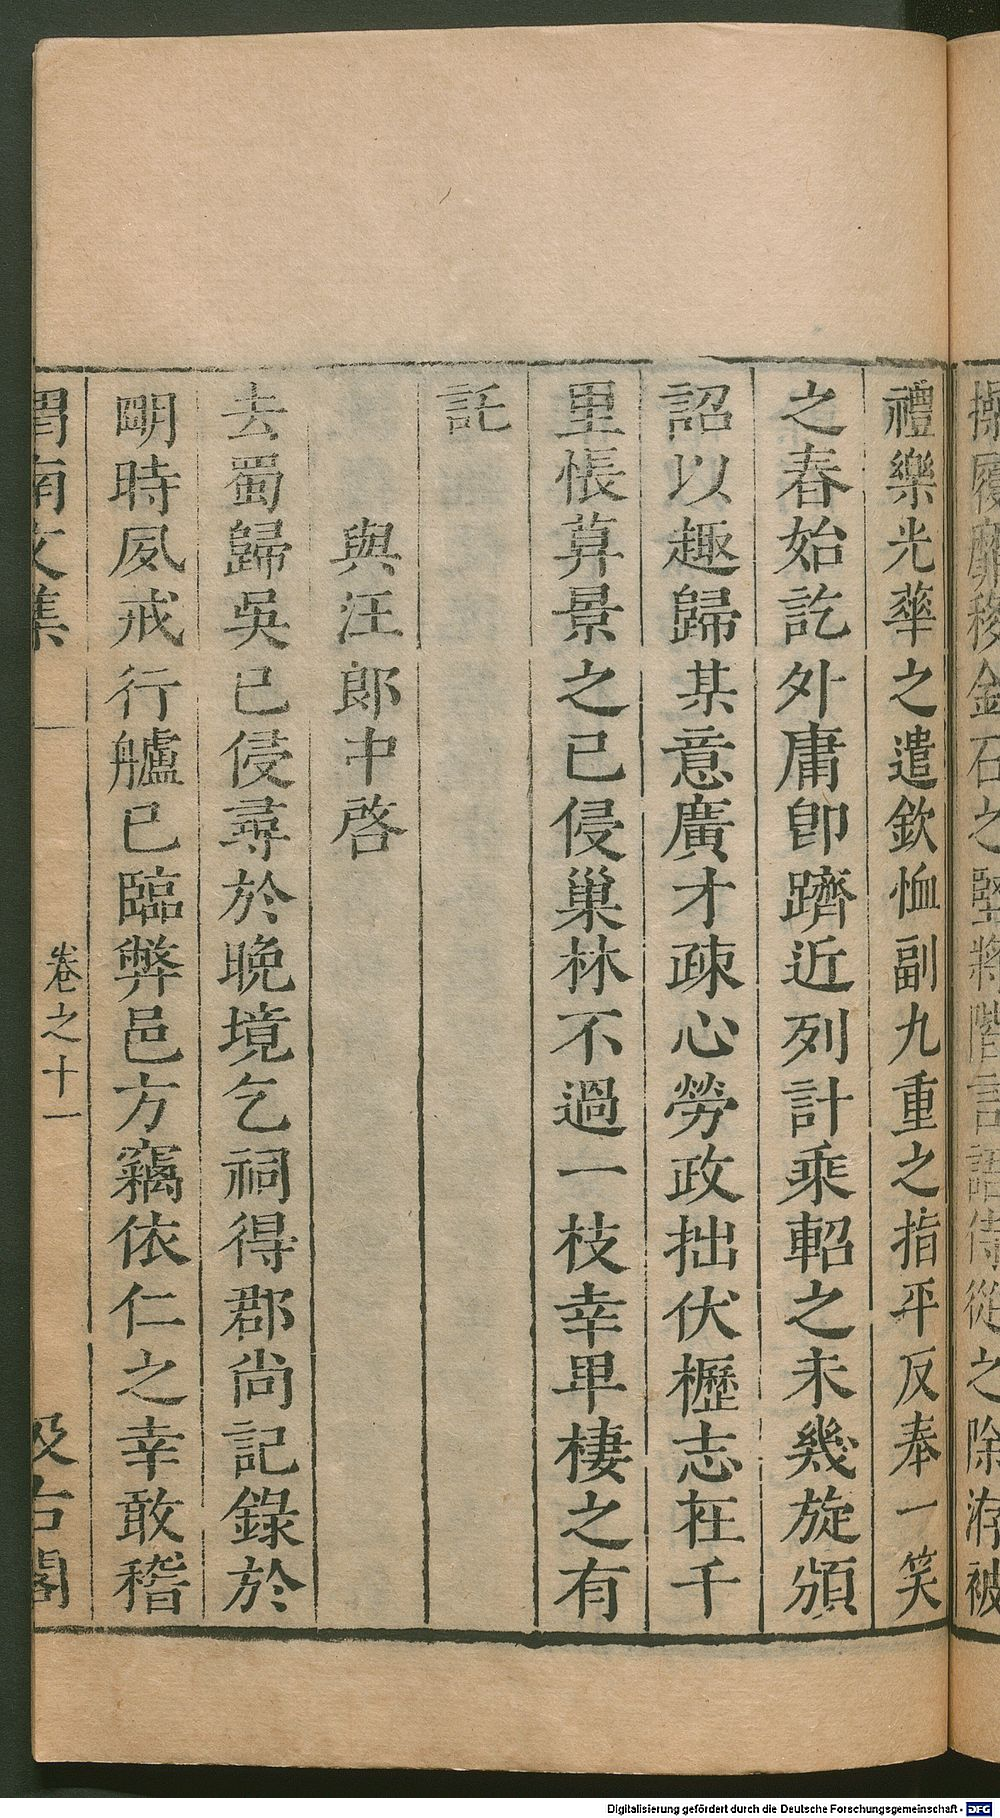 操履靡移金石之堅將階言語侍從之除洊被
禮樂光華之遣欽恤副九重之指平反奉一笑
之春始訖外庸卽躋近列計乘軺之未幾旋頒
詔以趣歸某意廣才疎心勞政拙伏櫪志在千
里悵算景之已侵巢林不過一枝幸畢棲之有
託
與汪郎中啓
去蜀歸吳已侵尋於晩境乞祠得郡尚記錄於
明時夙戒行艫已臨弊邑方竊依仁之幸敢稽
渭南文集
卷之十一
汲古閣
Digitalisierung gefördert durch die Deutsche Forschungsgemeinschaft - DFG